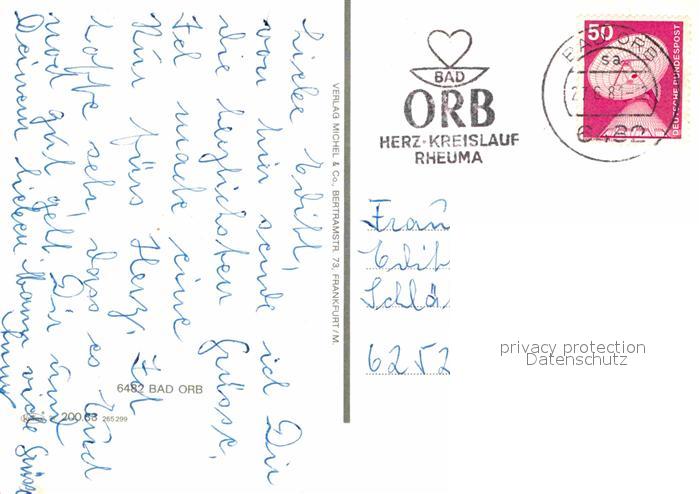 Liebe Edith,
von hier sende ich Dir
die herzlichsten Grüsse.
Ich mache eine
Kur fürs Herz. Ich
hoffe sehr, dass es Euch
noch gut geht. Dir und
Deinem lieben Mann viele Grüsse
VERLAG MICHEL & Co., BERTRAMSTR. 73, FRANKFURT/M.
6482 BAD ORB
200.63 265299
BAD
ORB
HERZ-KREISLAUF
RHEUMA
BAD ORB
sa
6482
50
DEUTSCHE BUNDESPOST
Frau
Edit
Schlä
6252
privacy protection
Datenschutz